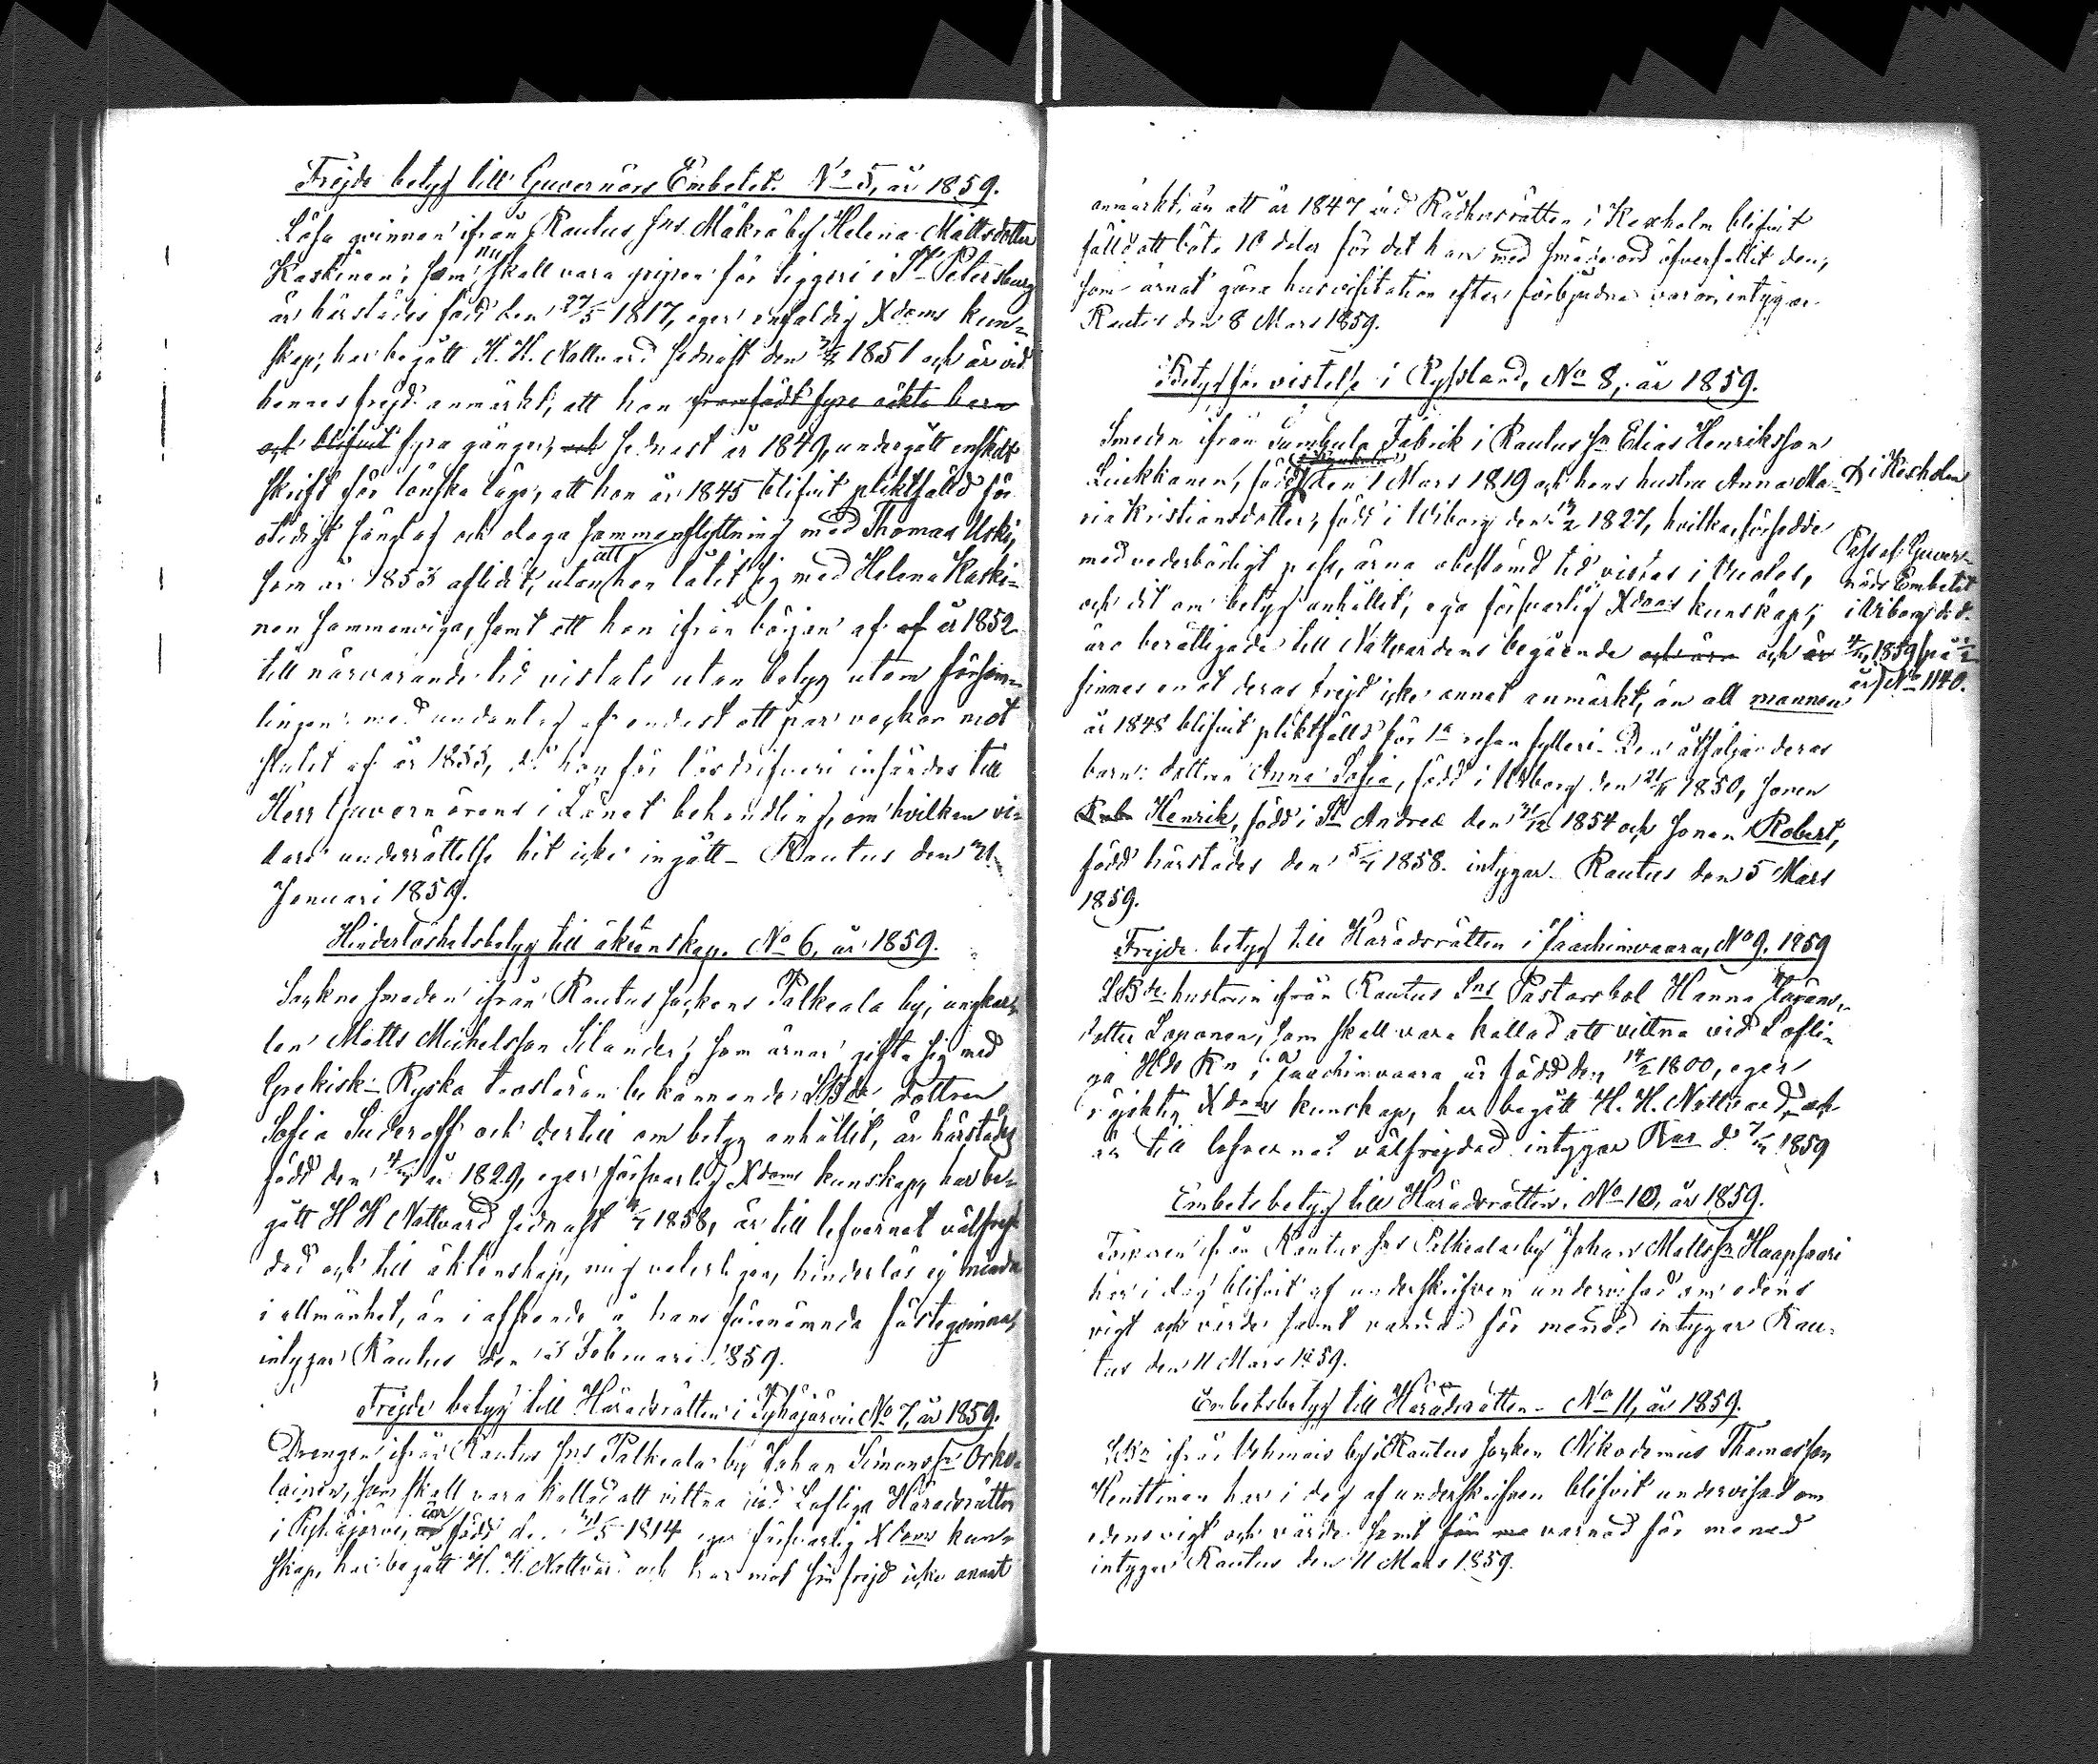 Frejde betyg till Guvernörs Embetet. No 5, år 1859.
Lösa qvinnan ifrån Rautus Sns Mäkrä by Helena Mattsdotter
Kaskinen, som nu skall vara gripen för tiggeri i St Petersburg
är härstädes född den 27/5 1817, eger enfaldig Xdoms kun-
skap, har begått H. H. Nattvard sednast den 1851 och är vid
hennes frejd anmärkt, att hon framfödt fyra oäkta barn
och blifvit fyra gånger, och sednast år 1849, undergått enskildt
skrift för lönska läge, att hon år 1845 blifvit pliktfälld för
otidigt sänglag och olaga sammanflyttning med Thomas Uski,
som år 1853 aflidit, utan att han låtit sig med Helena Kaski-
nen sammanviga, samt att hon ifrån början af af år 1852
till närvarande tid vistats utan betyg utom försam-
lingen med undantag af endast ett par veckor mot
slutet af år 1855, då hon för lösdrifveri infördes till
Herr Guvernörens i Länet behandling, om hvilken vi-
dare underrättelse hit icke ingått. Rautus den 21
Januari 1859.
Hinderlöshetsbetyg till äktenskap. No 6, år 1859.
Sockne smeden ifrån Rautus sockens Palkeala by, ungkar-
len Matts Michelsson Silander, som ärnar gifta sig med
Grekisk-Ryska trosläran bekännande dottren
Sofia Sideroff och dertill om betyg anhållit, är härstädes
född den år 1829, eger försvarlig Xdoms kunskap, har be-
gått H H Nattvard sednast 1858, är till lefvernet välfrej-
dad och till äktenskap, mig veterligen, hinderlös ej mindre
i allmänhet, än i afseende å hans förenämnda fästeqvinna,
intygar Rautus den Februari 1859.
Frejde betyg till Häradsrätten i Pyhäjärvi No 7, år 1859.
Drengen ifrån Rautus Sns Palkeala by Johan Simonsson Orko-
lainen, som skall vara kallad att vittna vid Lofliga Häradsrätten
i Pyhäjärvi, är född den 1814 eger försvarlig Xdoms kun-
skap, har begått H. H. Nattvard och har mot sin frejd icke annat
anmärkt, än att år 1847 vid Rådhusrätten i Kexholm blifvit
fälld att böta 10 daler för det han med smädeord öfverfallit den,
som ärnat göra husvisitation efter förbjudna varor, intygar
Rautus den 8 Mars 1859.
Betyg för vistelse i Ryssland, No 8, år 1859.
Smeden ifrån Sumbula Fabrik i Rautus Sn Elias Henriksson
Luikkanen, född den 1 Mars 1819 och hans hustru Anna Ma- i Kexholm
ria Kristiansdotter, född i Wiborg den 1827, hvilka, försedde
med vederbörligt pass, ärna obestämd tid vistas i
och dit om betyg anhållit, ega försvarlig Xdoms kunskap,
äro berättigade till Nattvardens begående och äro och är
finnes emot deras frejd icke annat anmärkt, än att mannen
Pass af Guver-
nörs Embetet
i Wiborg d.d.
1859 på ½
år, No 1140.
år 1848 blifvit pliktfälld för 1a resan fylleri. Den åtfölja deras
barn: dottren Anna Sofia, född i Wiborg den 1850, sonen
Rob Henrik, född i St Andreæ den 1854 och sonen Robert,
född härstädes den 1858. intygar. Rautus den 5 Mars
1859.
Frejde betyg till Häradsrätten i Jaakimvaara, No 9. 1859
hustrun ifrån Rautus Sns Pastorsbol Hanna
dotter Loponen, som skall vara kallad att vittna vid Lofli-
ga Hds Rn i Jaakimvaara är född den 1800, eger
Xdoms kunskap, har begått H. H. Nattvard och
är till lefvernet välfrejdad intygar Rus d. 1859
Embets betyg till Häradsrätten. No 10, år 1859.
Torparen ifrån Rautus Sns Palkeala by Johan Mattsson Haapsaari
har i dag blifvit af underskrifven undervisad om edens
vigt och värde samt varnad för mened intygar Rau-
tus den 11 Mars 1859.
Embetsbetyg till Häradsrätten - No 11, år 1859.
ifrån Wehmais by i Rautus socken Nikodemus Thomasson
Henttinen har i dag af underskrifven blifvit undervisad om
edens vigt och värde samt för me varnad för mened
intygar Rautus den 11 Mars 1859.